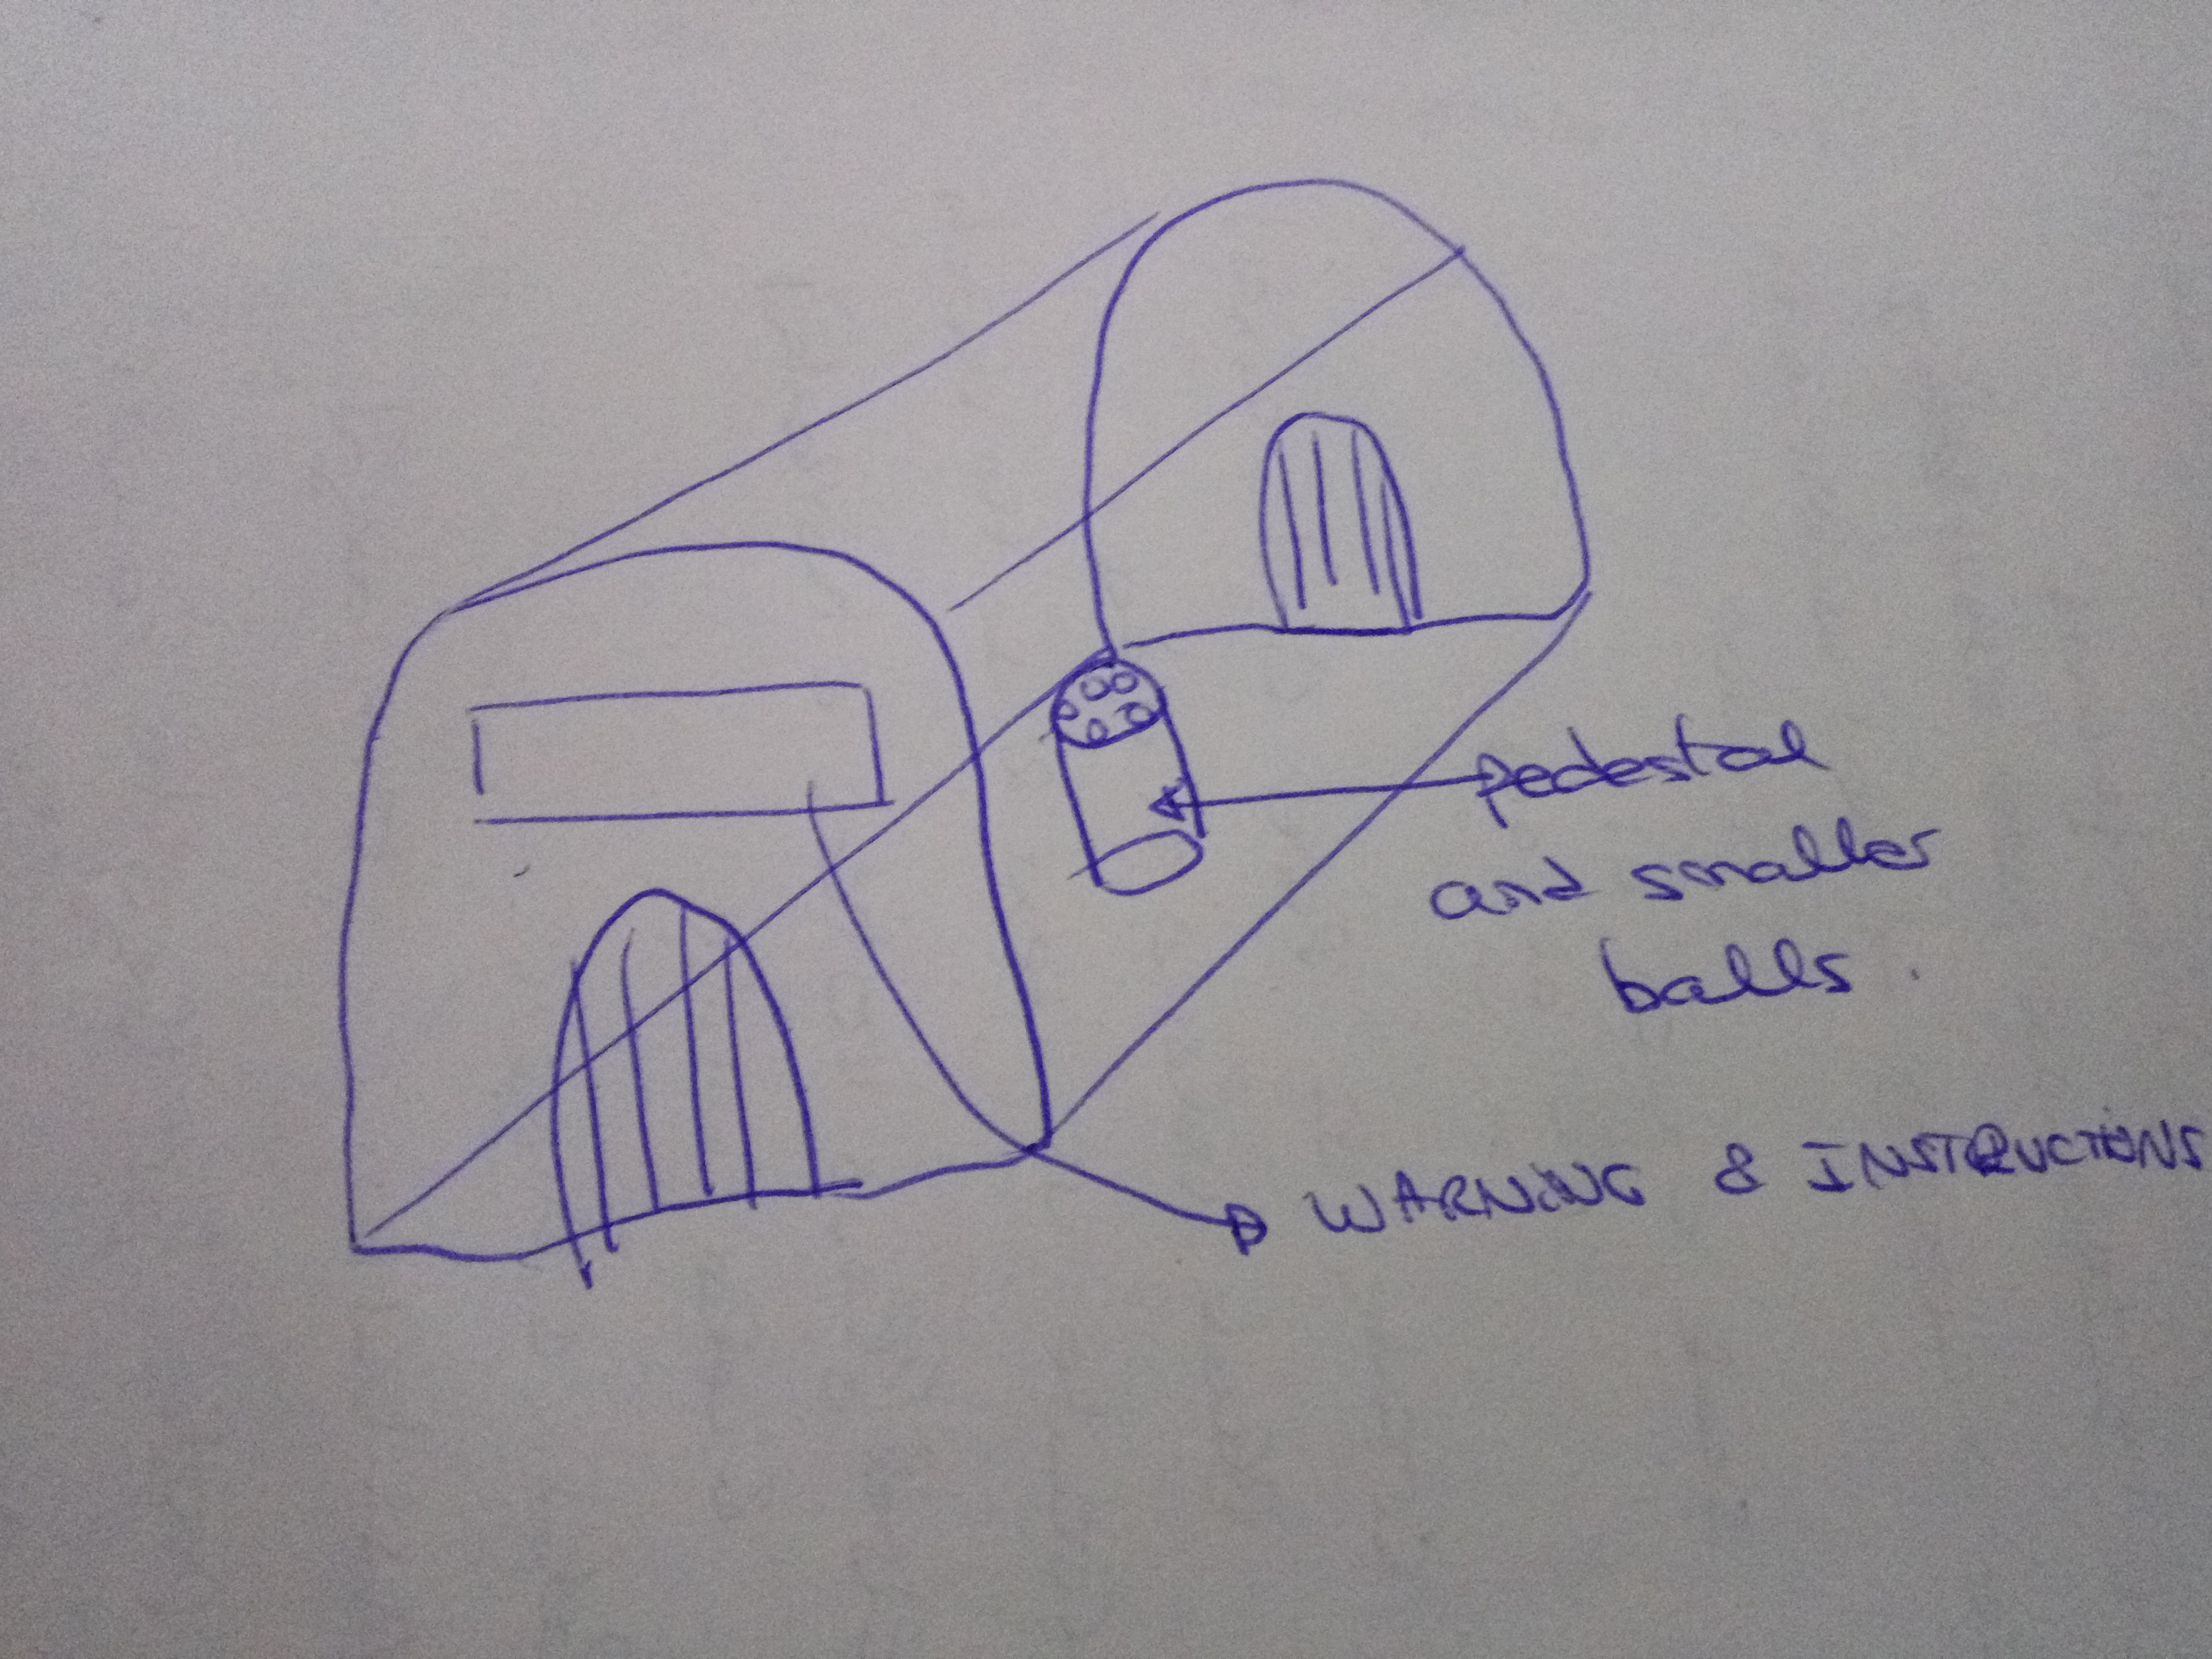 pedestal
and smaller
balls.
WARNING & INSTRUCTIONS